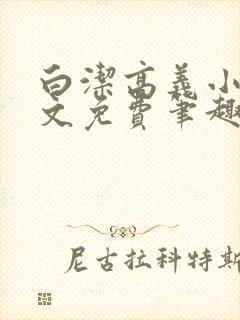 白潔高義小
文免費笔趣
尼古拉科特斯